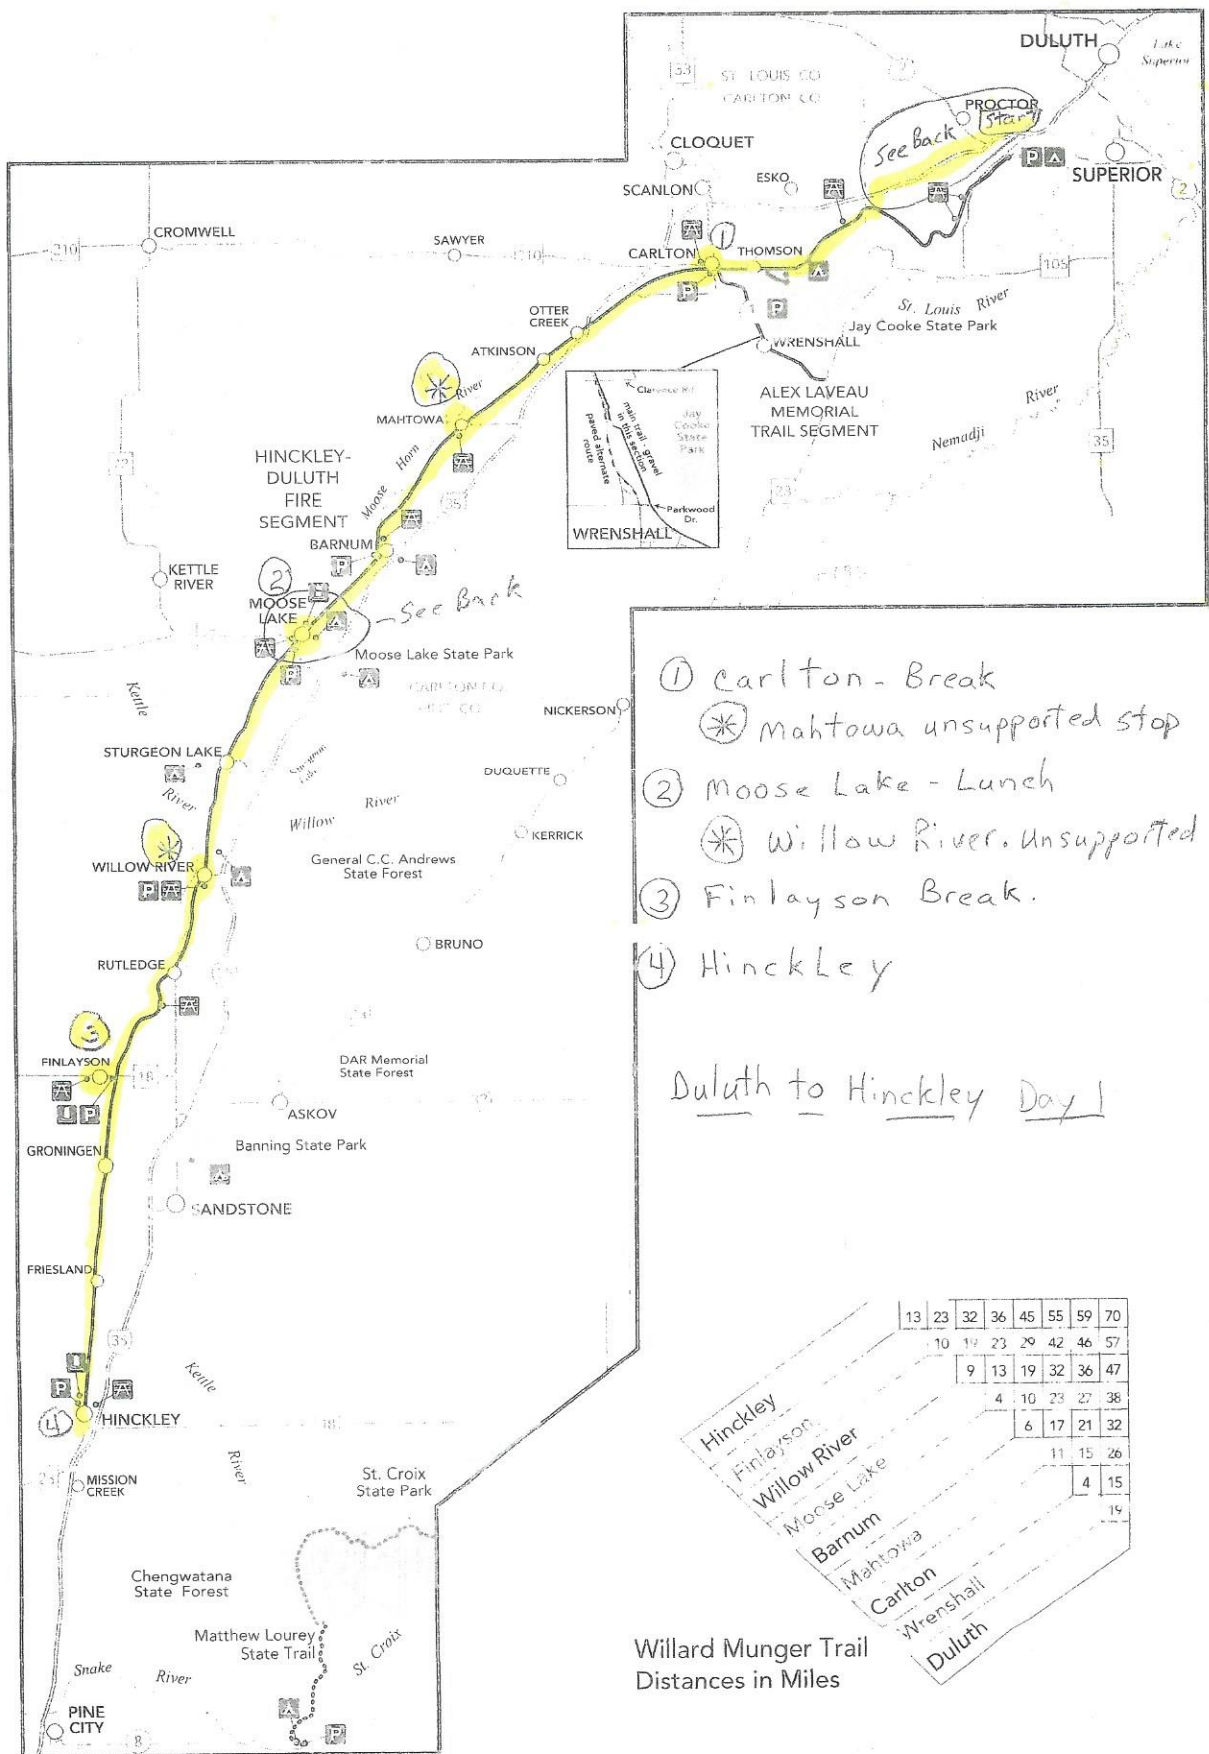 DULUTH
Lake
Superior
33
ST. LOUIS CO
CARLTON CO
2
PROCTOR
Start
See Back
CLOQUET
SCANLON
ESKO
P
SUPERIOR
2
CROMWELL
210
SAWYER
210
CARLTON
1
THOMSON
105
P
P
St. Louis River
Jay Cooke State Park
OTTER
CREEK
ATKINSON
WRENSHALL
ALEX LAVEAU
MEMORIAL
TRAIL SEGMENT
Nemadji
River
35
23
Clarence Rd
main trail - gravel
in this section
paved alternate
route
Jay
Cooke
State
Park
Parkwood
Dr.
WRENSHALL
MAHTOWA
Moose Horn River
HINCKLEY-
DULUTH
FIRE
SEGMENT
35
BARNUM
P
KETTLE
RIVER
2
MOOSE
LAKE
See Back
P
Moose Lake State Park
CARLTON CO.
PINE CO.
Kettle
River
NICKERSON
STURGEON LAKE
DUQUETTE
Willow River
KERRICK
WILLOW RIVER
P
General C.C. Andrews
State Forest
BRUNO
RUTLEDGE
3
FINLAYSON
18
P
DAR Memorial
State Forest
ASKOV
Banning State Park
GRONINGEN
SANDSTONE
FRIESLAND
35
Kettle
River
P
4
HINCKLEY
MISSION
CREEK
St. Croix
State Park
Chengwatana
State Forest
Matthew Lourey
State Trail
St. Croix
Snake River
PINE
CITY
8
P
① Carlton - Break
Mahtowa unsupported stop
② Moose Lake - Lunch
Willow River. Unsupported
③ Finlayson Break.
④ Hinckley
Duluth to Hinckley Day 1
13 23 32 36 45 55 59 70
10 19 23 29 42 46 57
9 13 19 32 36 47
4 10 23 27 38
6 17 21 32
11 15 26
4 15
19
Hinckley
Finlayson
Willow River
Moose Lake
Barnum
Mahtowa
Carlton
Wrenshall
Duluth
Willard Munger Trail
Distances in Miles